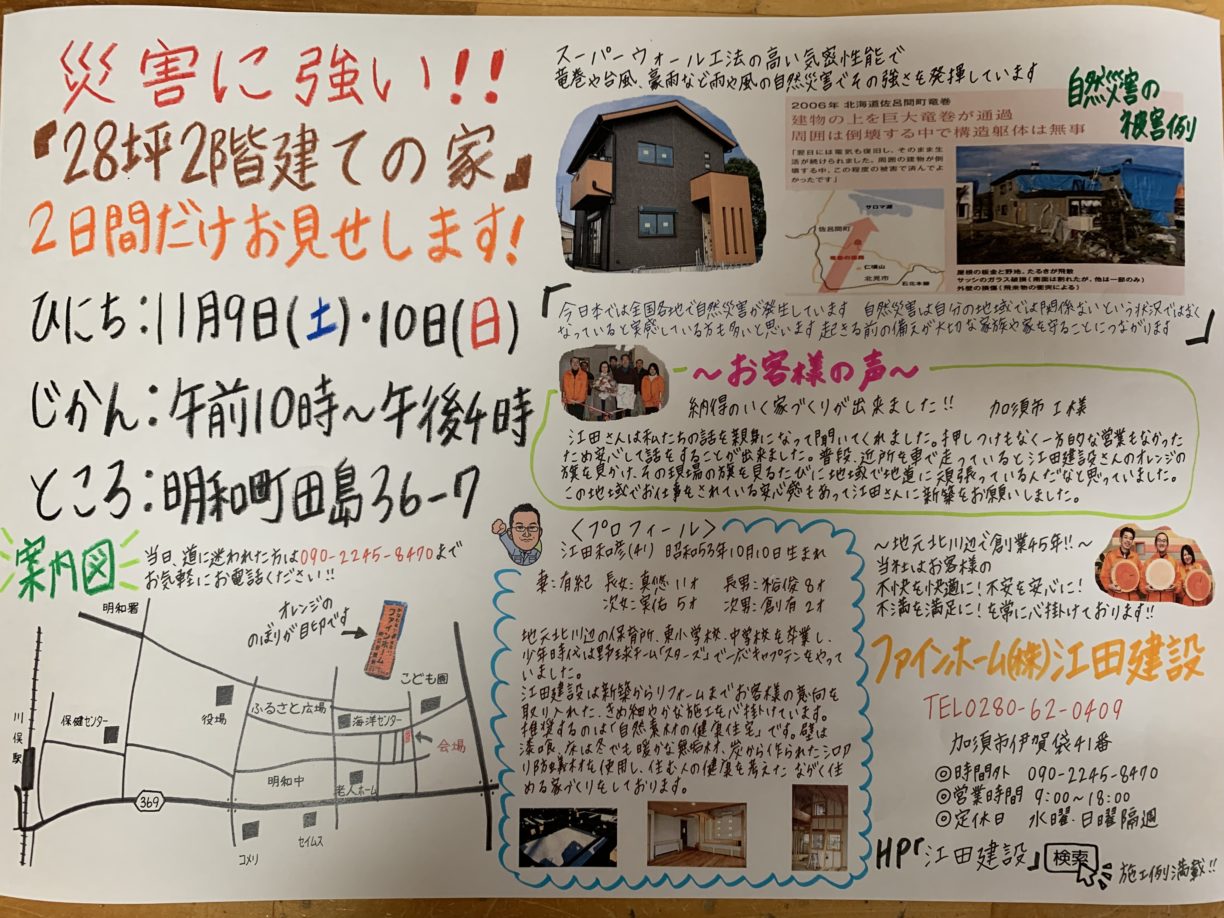 災害に強い!!
『28坪2階建ての家』
2日間だけお見せします!
ひにち:11月9日(土)・10日(日)
じかん:午前10時～午後4時
ところ:明和町田島36-7
案内図
当日、道に迷われた方は090-2245-8470まで
お気軽にお電話ください!!
明和署
オレンジの
のぼりが目印です
ファインホーム
こども園
川俣駅
保健センター
役場
ふるさと広場
海洋センター
会場
明和中
老人ホーム
369
コメリ
セイムス
スーパーウォール工法の高い気密性能で
竜巻や台風、豪雨など雨や風の自然災害でその強さを発揮しています
自然災害の
被害例
2006年 北海道佐呂間町竜巻
建物の上を巨大竜巻が通過
周囲は倒壊する中で構造躯体は無事
「翌日には電気も復旧し、そのまま生
活が続けられました。周囲の建物が倒
壊する中、この程度の被害で済んでよ
かったです」
サロマ湖
佐呂間町
竜巻の経路
仁頃山
北見市
石北本線
屋根の板金と野地、たるきが飛散
サッシのガラス破損(南面は割れたが、他は一部のみ)
外壁の損傷(飛来物の衝突による)
「今日本では全国各地で自然災害が発生しています 自然災害は自分の地域では関係ないという状況ではなく
なっていると実感している方も多いと思います 起きる前の備えが大切な家族や家を守ることにつながります」
～お客様の声～
納得のいく家づくりが出来ました!! 加須市 I様
江田さんは私たちの話を親身になって聞いてくれました。押しつけもなく一方的な営業もなかった
ため安心して話をすることが出来ました。普段、近所を車で走っていると江田建設さんのオレンジの
旗を見かけ、その現場の旗を見るたびに地域で地道に頑張っているんだなと思っていました。
この地域でお仕事をされている安心感もあって江田さんに新築をお願いしました。
〈プロフィール〉
江田和彦(41) 昭和53年10月10日生まれ
妻:有紀 長女:真悠 11才 長男:裕俊 8才
次女:実佑 5才 次男:創有 2才
地元北川辺の保育所、東小学校、中学校を卒業し、
少年時代は野球チーム「スターズ」で一応キャプテンをやって
いました。
江田建設は新築からリフォームまでお客様の意向を
取り入れた、きめ細やかな施工を心掛けています。
推奨するのは「自然素材の健康住宅」です。壁は
漆喰、床は冬でも暖かな無垢材、炭から作られたシロア
リ防蟻材を使用し、住む人の健康を考えた ながく住
める家づくりをしております。
～地元北川辺で創業45年!!～
当社はお客様の
不快を快適に!不安を安心に!
不満を満足に!を常に心掛けております!!
ファインホーム(株)江田建設
TEL0280-62-0409
加須市伊賀袋41番
◎時間外 090-2245-8470
◎営業時間 9:00～18:00
◎定休日 水曜・日曜隔週
HP「江田建設」検索
施工例満載!!